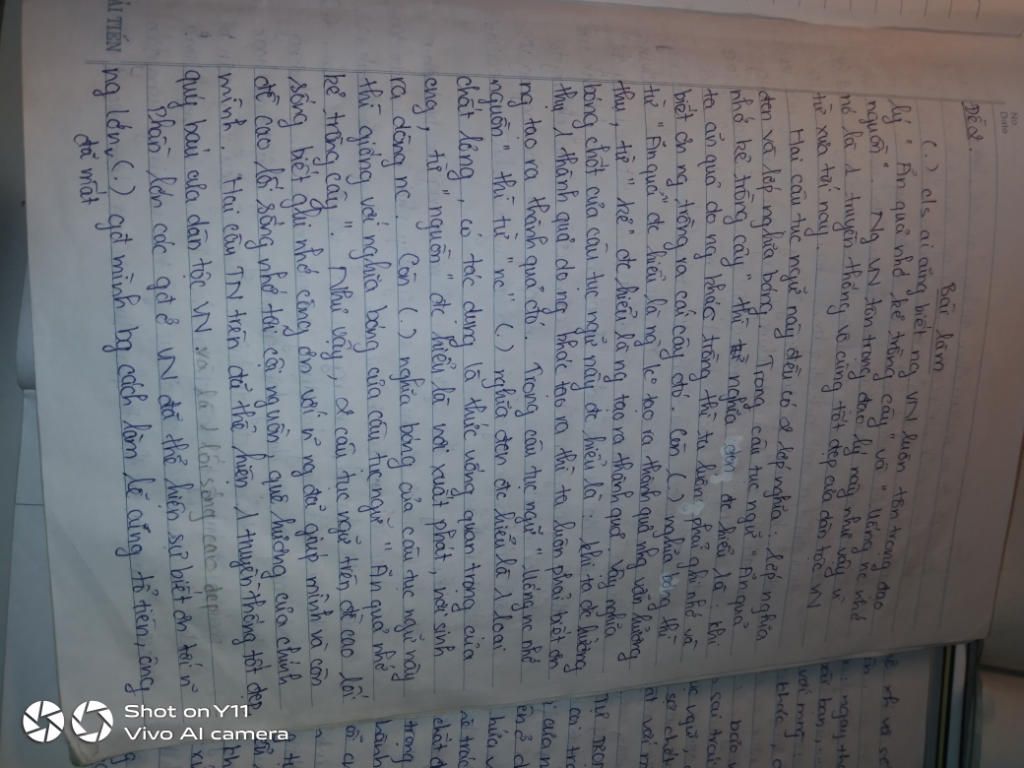 No.
Date
Đề 2.
Bài làm
(.) c/s ai cũng biết ng VN luôn tôn trọng đạo
lý " Ăn quả nhớ kẻ trồng cây " và " Uống nc nhớ
nguồn ". Ng VN tôn trọng đạo lí này như vậy vì
nó là 1 truyền thống vô cùng tốt đẹp của dân tộc VN
từ xưa tới nay.
Hai câu tục ngữ này đều có 2 lớp nghĩa: lớp nghĩa
đen và lớp nghĩa bóng. Trong câu tục ngữ " Ăn quả
nhớ kẻ trồng cây " thì nghĩa đen đc hiểu là : khi
ta ăn quả do ng khác trồng thì ta luôn phải ghi nhớ và
biết ơn ng trồng ra cái cây đó. Còn (.) nghĩa bóng thì
từ " Ăn quả " đc hiểu là ng k tạo ra thành quả nhg vẫn hưởng
thụ, từ " kẻ " đc hiểu là ng tạo ra thành quả. Vậy nghĩa
bóng chốt của câu tục ngữ này đc hiểu là : khi ta đc hưởng
thụ 1 thành quả do ng khác tạo ra thì ta luôn phải biết ơn
ng tạo ra thành quả đó. Trong câu tục ngữ " Uống nc nhớ
nguồn " thì từ " nc " (.) nghĩa đen đc hiểu là 1 loại
chất lỏng, có tác dụng là thức uống quan trọng của
ng, từ " nguồn " đc hiểu là nơi xuất phát, nơi sinh
ra dòng nc. Còn (.) nghĩa bóng của câu tục ngữ này
thì giống với nghĩa bóng của câu tục ngữ " Ăn quả nhớ
kẻ trồng cây ". Như vậy, 2 câu tục ngữ trên đề cao lối
sống biết ghi nhớ công ơn với n~ ng đã giúp mình và còn
đề cao lối sống nhớ tới cội nguồn, quê hương của chính
mình. Hai câu TN trên đã thể hiện 1 truyền thống tốt đẹp
quý báu của dân tộc VN và là 1 lối sống cao đẹp
Phần lớn các gđ ở VN đã thể hiện sự biết ơn tới n~
ng lớn, (.) gđ mình bg cách làm lễ cúng tổ tiên, ông
đã mất
ẢI TIẾN
Shot on Y11
Vivo AI camera